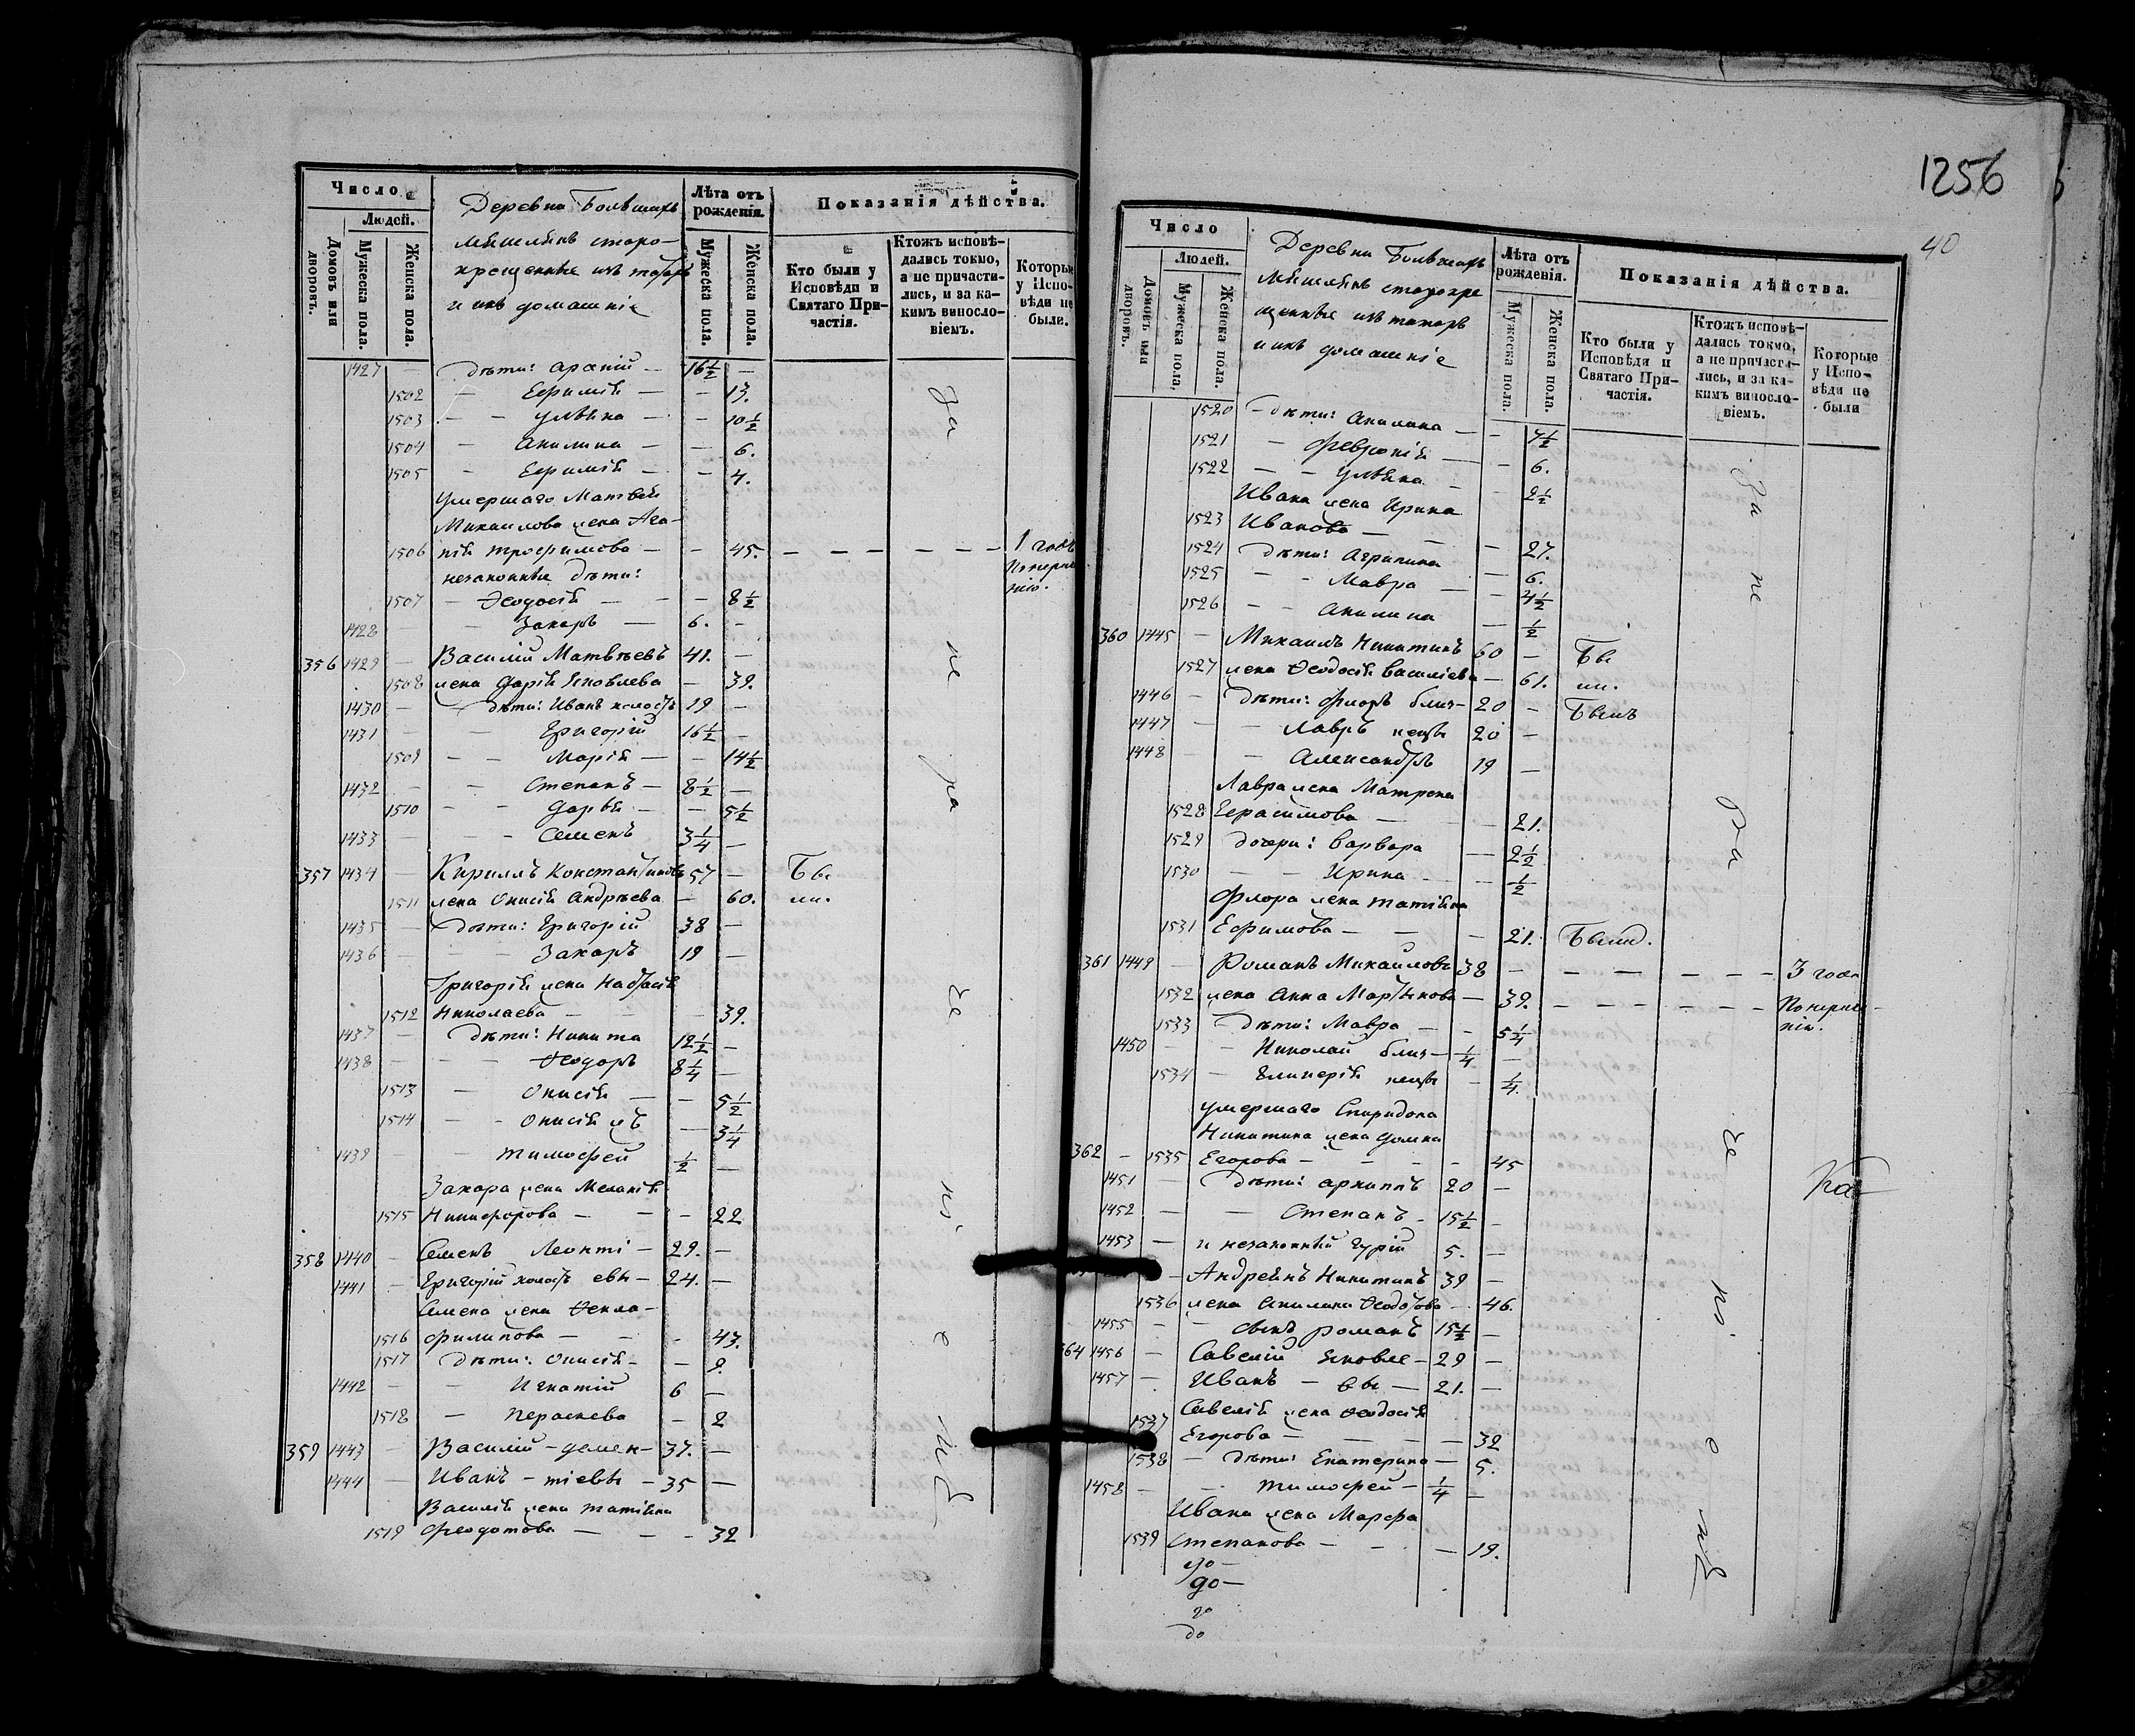 Число
Людей.
Домовъ или дворовъ.
Мужеска пола.
Женска пола.
Деревни Большихъ
крещенные изъ татаръ
и ихъ домашніе
Лѣта отъ рожденія.
Мужеска пола.
Женска пола.
Показанія дѣйства.
Кто были у Исповѣди и Святаго Причастія.
Ктожъ исповѣдались токмо, а не причастились, и за какимъ винословіемъ.
Которые у Исповѣди не были.
1427 — дѣти: 16½ —
1502 — 13.
1503 — Ульяна — 10½
1504 — Акилина — 6.
1505 — 4.
умершаго Матвѣя
Михаилова жена Ага-
1506 пія Трофимова — 45. — 1 годъ
незаконные дѣти:
1507 — Ѳеодосія — 8½
1428 — Захаръ — 6. —
356 1429 — Василій Матвѣевъ 41. —
1508 жена Дарія Яковлева — 39.
1430 — дѣти: Иванъ холостъ 19 —
1431 — Григорій 16½ —
1509 — Марія — 14½
1432 — Степанъ — 8½ —
1510 — Дарья — 5½
1433 — Семенъ 3¼ —
357 1434 — Кириллъ Константиновъ 57 — Бы
1511 жена Анисія Андрѣева — 60. ли.
1435 — дѣти: Григорій 38 —
1436 — Захаръ 19 —
Григорія жена
1512 Николаева — 39.
1437 — дѣти: Никита 12½ —
1438 — Ѳеодоръ 8¼ —
1513 — Анисія — 5½
1514 — Анисія 3¼
1439 — Тимофей ½ —
Захара жена Меланія
1515 Никифорова — 22
358 1440 — Семенъ Леонті — 29. —
1441 — Григорій холостъ евы — 24. —
Семена жена Ѳекла
1516 Филипова — 43.
1517 дѣти: Анисія — 9.
1442 — Игнатій 6 —
1518 — Параскева — 2
359 1443 — Василій — Демен — 37. —
1444 — Иванъ — тіевы — 35 —
Василія жена Татіяна
1519 Феодотова — 32
за не ра че ні е мъ
1256
40
Число
Людей.
Домовъ или дворовъ.
Мужеска пола.
Женска пола.
Деревни Большихъ
старокре
щенные изъ татаръ
и ихъ домашніе
Лѣта отъ рожденія.
Мужеска пола.
Женска пола.
Показанія дѣйства.
Кто были у Исповѣди и Святаго Причастія.
Ктожъ исповѣдались токмо, а не причастились, и за какимъ винословіемъ.
Которые у Исповѣди не были
1520 — дѣти: Акилина —
1521 — Февронія — 6.
1522 — Ульяна — 2½
Ивана жена Ирина
1523 Иванова — 27.
1524 дѣти: Агрипина — 6.
1525 — Мавра — 4½
1526 — Акилина — ½
360 1445 — Михаилъ Никитинъ 60 — Бы
1527 жена Ѳеодосія Василіева — 61. ли.
1446 — дѣти: Флоръ близ — 20 — Былъ
1447 — Лавръ нецы 20 —
1448 — Александръ 19 —
Лавра жена Матрона
1528 Герасимова — 21.
1529 дочери: Варвара — 2½
1530 — Ирина — ½
Флора жена Татіяна
1531 Ефимова — 21. Была.
361 1449 — Романъ Михаиловъ 38 — 3 года
1532 жена Анна Мартынова — 39.
1533 дѣти: Мавра — 5¼
1450 — Николай близ — ¼ —
1534 — Гликерія нецы — ¼.
умершаго Спиридона
Никитина жена Домна
362 — 1535 Егорова — 45
1451 — дѣти: Архиппъ 20 —
1452 — Степанъ — 15½ —
1453 — и незаконный Гурій 5. —
— Андреянъ Никитинъ 39 —
1536 жена Акилина Ѳеодотова — 46.
1455 — сынъ Романъ 15½ —
364 1456 — Савелій Яковле — 29 —
1457 — Иванъ — вы — 21. —
Савелія жена Ѳеодосія
1537 Егорова — 32
1538 — дѣти: Екатерина — 5.
1458 — Тимофей — ¼ —
Ивана жена Марфа
1539 Степанова — 19.
до
за не ра че ні е мъ